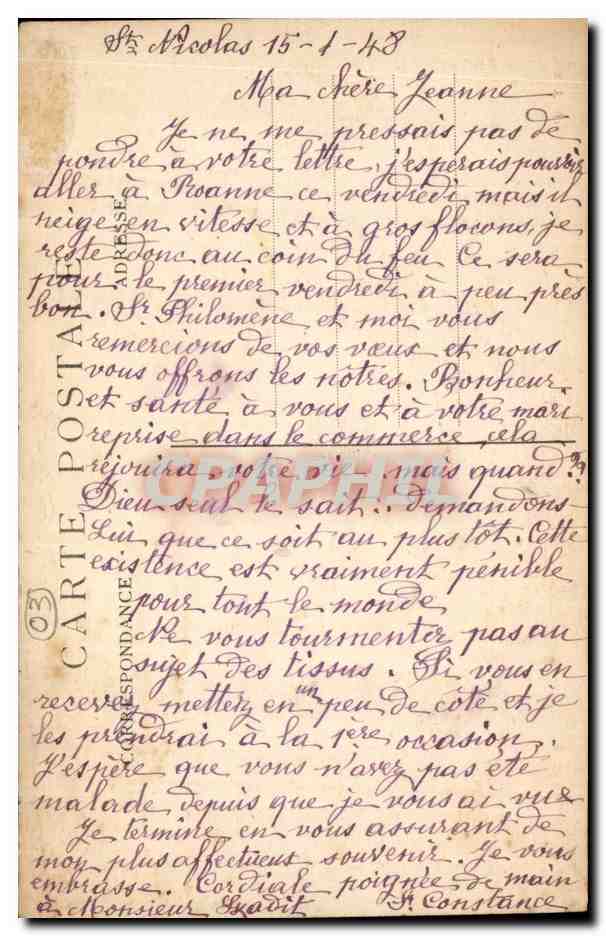 St Nicolas 15-1-48
Ma chère Jeanne
Je ne me pressais pas de
pondre à votre lettre, j'espérais pouvoir
aller à Roanne ce vendredi mais il
neige en vitesse et à gros flocons, je
reste donc au coin du feu Ce sera
pour le premier vendredi à peu près
bon. Sr Philomène et moi vous
remercions de vos vœux et nous
vous offrons les nôtres. Bonheur
et santé à vous et à votre mari
reprise dans le commerce, cela
réjouira votre vie. mais quand?
Dieu seul le sait.. demandons-
Lui que ce soit au plus tôt. Cette
existence est vraiment pénible
pour tout le monde
Ne vous tourmentez pas au
sujet des tissus. Si vous en
recevez mettez en un peu de côté et je
les prendrai à la 1ère occasion.
J'espère que vous n'avez pas été
malade depuis que je vous ai vue
Je termine en vous assurant de
mon plus affectueux souvenir. Je vous
embrasse. Cordiale poignée de main
à Monsieur
Sr Constance
CARTE POSTALE
CORRESPONDANCE
ADRESSE
03
CPAPHIL